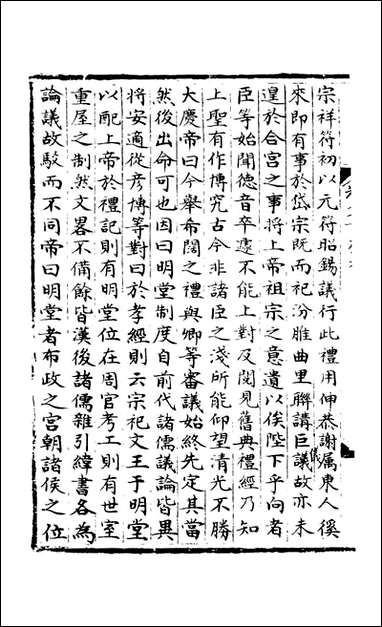 宗祥符初以元符昭錫議行此禮用伸恭謝属東人徯
來即有事於岱宗既而祀汾脽曲里聨講巨議故亦未
遑於合宮之事將上帝祖宗之意遺以俟陛下乎向者
臣等始聞德音卒遽不能上對及閱見舊典禮經乃知
上聖有作博究古今非諸臣之淺所能仰望清光不勝
大慶帝曰今舉布闊之禮與卿等審議始終先定其當
然後出命可也因曰明堂制度自前代諸儒議論皆異
將安適從彦博等對曰於孝經則云宗祀文王于明堂
以配上帝於禮記則有明堂位在周官考工則有世室
重屋之制然文畧不備餘皆漢後諸儒雜引緯書各為
論議故駮而不同帝曰明堂者布政之宫朝諸侯之位